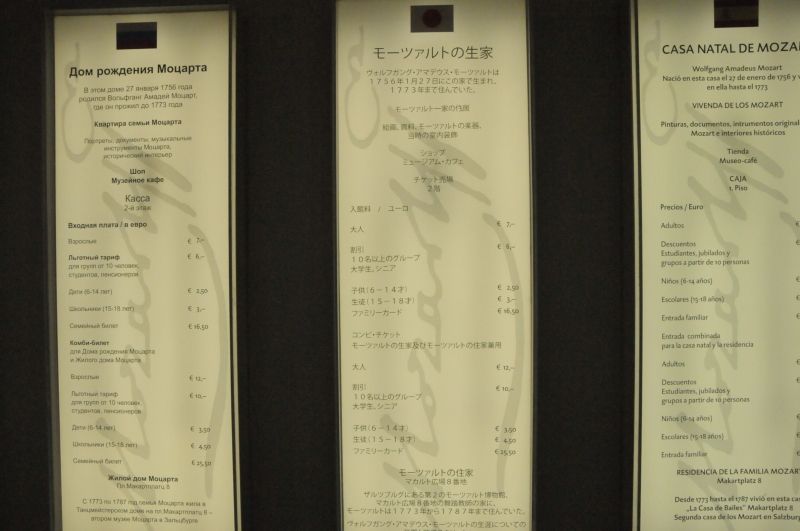 Дом рождения Моцарта
В этом доме 27 января 1756 года
родился Вольфганг Амадей Моцарт,
где он прожил до 1773 года
Квартира семьи Моцарта
Портреты, документы, музыкальные
инструменты Моцарта,
исторический интерьер
Шоп
Музейное кафе
Касса
2-й этаж
Входная плата / в евро
Взрослые € 7,–
Льготный тариф € 6,–
для групп от 10 человек,
студентов, пенсионеров
Дети (6-14 лет) € 2,50
Школьники (15-18 лет) € 3,–
Семейный билет € 16,50
Комби-билет
для Дома рождения Моцарта
и Жилого дома Моцарта
Взрослые € 12,–
Льготный тариф € 10,–
для групп от 10 человек,
студентов, пенсионеров
Дети (6-14 лет) € 3,50
Школьники (15-18 лет) € 4,50
Семейный билет € 25,50
Жилой дом Моцарта
Пл.Макартплатц 8
С 1773 по 1787 год семья Моцарта жила в
Танцмейстерском доме на пл.Макартплатц 8 –
втором музее Моцарта в Зальцбурге
モーツァルトの生家
ヴォルフガング・アマデウス・モーツァルトは
１７５６年１月２７日にこの家で生まれ、
１７７３年まで住んでいた。
モーツァルト一家の住居
絵画、資料、モーツァルトの楽器、
当時の室内装飾
ショップ
ミュージアム・カフェ
チケット売場
２階
入館料 / ユーロ
大人 € 7,–
割引 € 6,–
１０名以上のグループ
大学生、シニア
子供（６－１４才） € 2,50
生徒（１５－１８才） € 3,–
ファミリーカード € 16,50
コンビ・チケット
モーツァルトの生家及びモーツァルトの住家兼用
大人 € 12,–
割引 € 10,–
１０名以上のグループ
大学生、シニア
子供（６－１４才） € 3,50
生徒（１５－１８才） € 4,50
ファミリーカード € 25,50
モーツァルトの住家
マカルト広場８番地
ザルツブルグにある第２のモーツァルト博物館、
マカルト広場８番地の舞踏教師の家に、
モーツァルトは１７７３年から１７８７年まで住んでいた。
ヴォルフガング・アマデウス・モーツァルトの生涯についての
CASA NATAL DE MOZA
Wolfgang Amadeus Mozart
Nació en esta casa el 27 de enero de 1756 y v
en ella hasta el 1773
VIVENDA DE LOS MOZART
Pinturas, documentos, intrumentos original
Mozart e interiores históricos
Tienda
Museo-café
CAJA
1. Piso
Precios / Euro
Adultos €
Descuentos €
Estudiantes, jubilados y
grupos a partir de 10 personas
Niños (6-14 años) €
Escolares (15-18 años) €
Entrada familiar €
Entrada combinada
para la casa natal y la residencia
Adultos €
Descuentos €
Estudiantes, jubilados y
grupos a partir de 10 personas
Niños (6-14 años) €
Escolares (15-18 años) €
Entrada familiar €
RESIDENCIA DE LA FAMILIA MOZAR
Makartplatz 8
Desde 1773 hasta el 1787 vivió en esta cas
„La Casa de Bailes" Makartplatz 8
Segunda casa de los Mozart en Salzbur